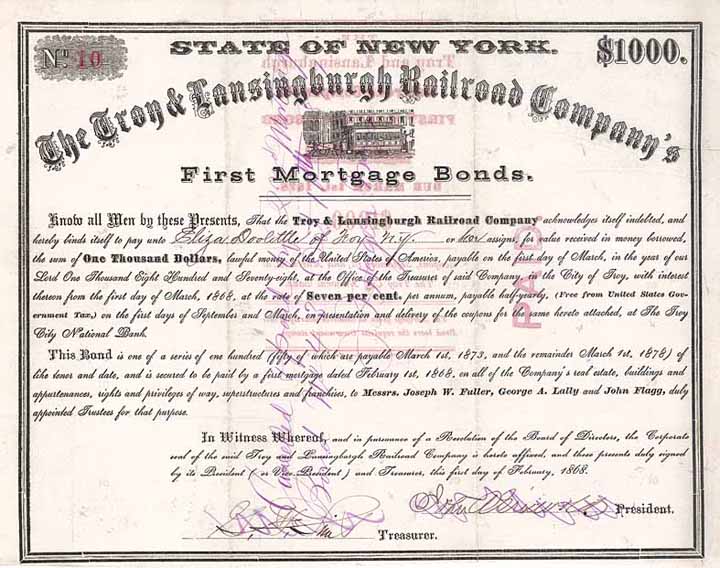 No. 10
STATE OF NEW YORK.
$1000.
The Troy & Lansingburgh Railroad Company's
First Mortgage Bonds.
Know all Men by these Presents, That the Troy & Lansingburgh Railroad Company acknowledges itself indebted, and
hereby binds itself to pay unto Eliza Doolittle of Troy N.Y. or her assigns, for value received in money borrowed,
the sum of One Thousand Dollars, lawful money of the United States of America, payable on the first of March, in the year of our
Lord One Thousand Eight Hundred and Seventy-eight, at the Office of the Treasurer of said Company, in the City of Troy, with interest
thereon from the first day of March, 1868, at the rate of Seven per cent. per annum, payable half-yearly, (Free from United States Gov-
ernment Tax,) on the first days of September and March, on presentation and delivery of the coupons for the same hereto attached, at The Troy
City National Bank.
This Bond is one of a series of one hundred (fifty of which are payable March 1st, 1873, and the remainder March 1st, 1878) of
like tenor and date, and is secured to be paid by a first mortgage dated February 1st, 1868, on all of the Company's real estate, buildings and
appurtenances, rights and privileges of way, superstructures and franchises, to Messrs. Joseph W. Fuller, George A. Lally and John Flagg, duly
appointed Trustees for that purpose.
In Witness Whereof, and in pursuance of a Resolution of the Board of Directors, the Corporate
seal of the said Troy and Lansingburgh Railroad Company is hereto affixed, and these presents duly signed
by its President (or Vice-President) and Treasurer, this first day of February, 1868.
President.
Treasurer.
PAID.